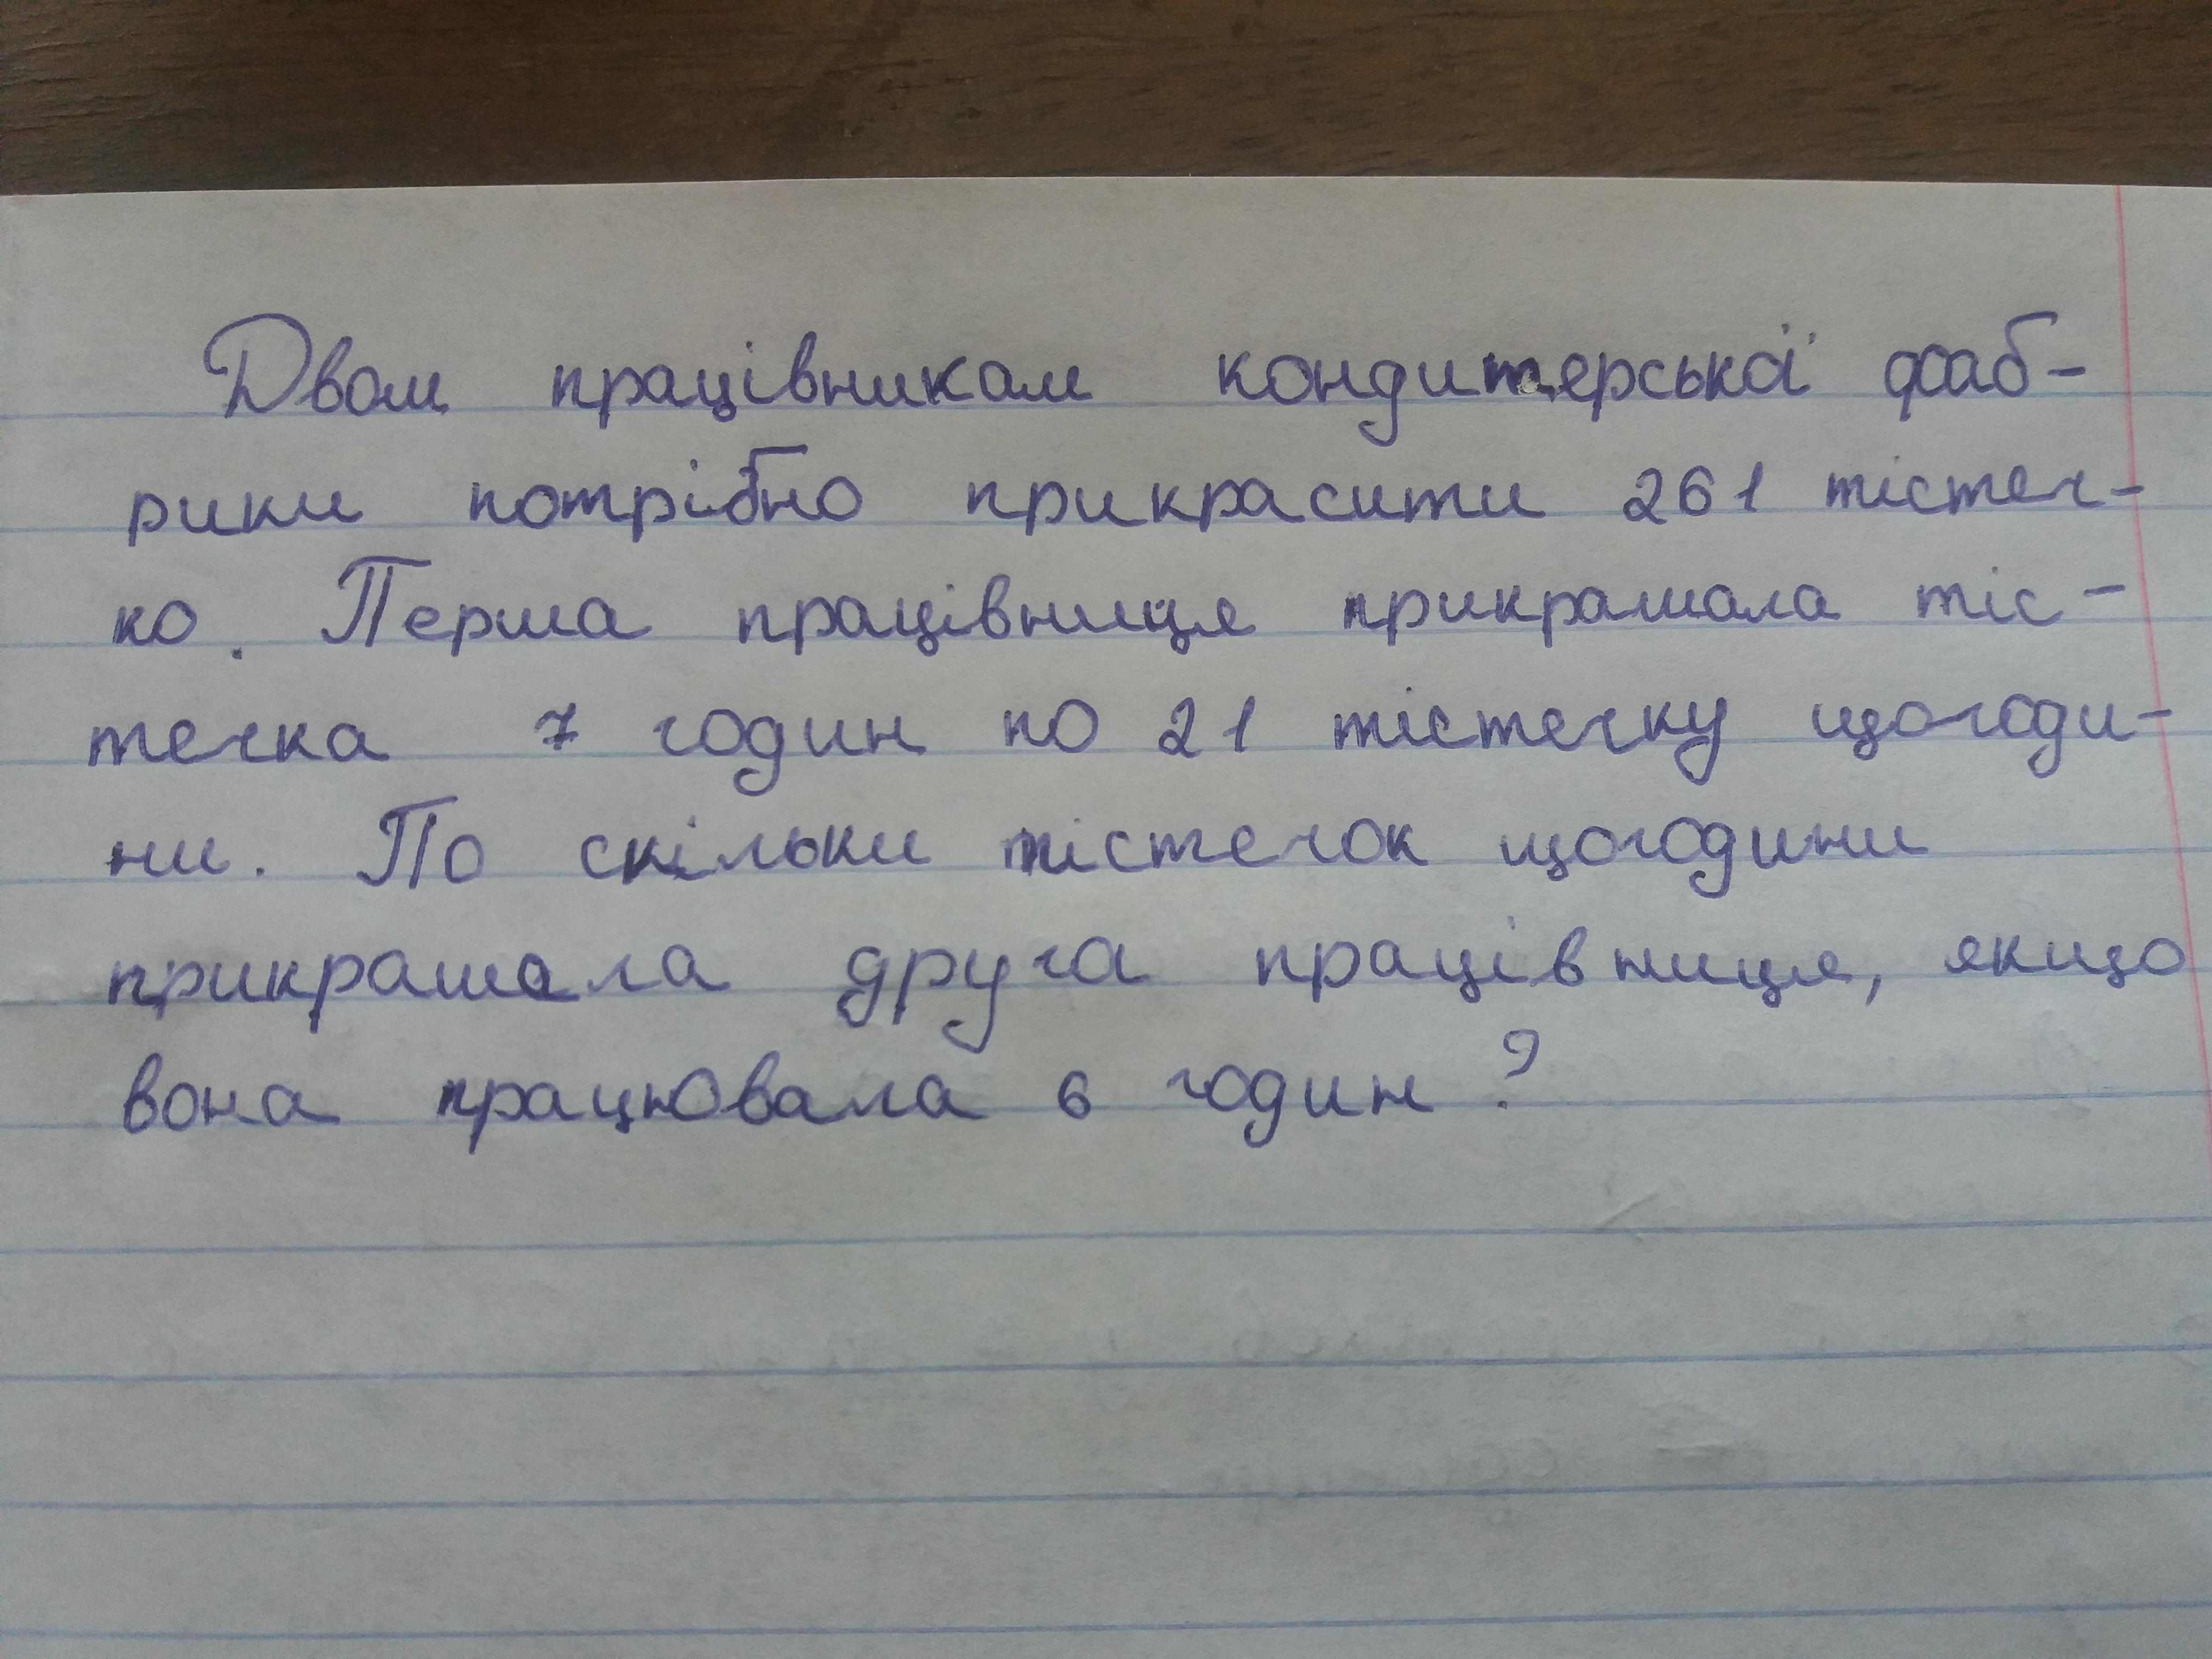 Двом працівникам кондитерської фаб-
рики потрібно прикрасити 261 тістеч-
ко. Перша працівниця прикрашала тіс-
течка 7 годин по 21 тістечку щогоди-
ни. По скільки тістечок щогодини
прикрашала друга працівниця, якщо
вона працювала 6 годин?